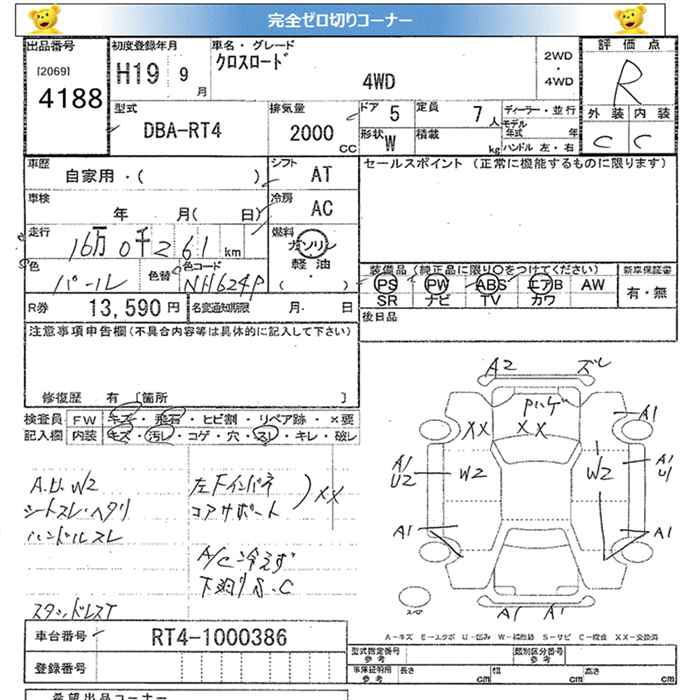 完全ゼロ切りコーナー
出品番号 初度登録年月 車名・グレード 2WD・4WD 評価点
[2069] H19 9月 クロスロード 4WD R
4188
型式 排気量 ドア 5 定員 7人 ディーラー・並行 外装 内装
DBA-RT4 2000cc 形状 W 積載 kg モデル年式 年 C C
ハンドル 左・右
車歴 シフト AT セールスポイント (正常に機能するものに限ります)
自家用・( )
車検 年 月( 日) 冷房 AC
走行 16万0千261km 燃料 ガソリン
軽油・( )
色 パール 色替 色コード NH624P
装備品 (純正品に限り〇をつけてください) 新車保証書
PS PW ABS エアB AW 有・無
SR ナビ TV カワ
R券 13,590円 名変通知期限 月・ 日 後日品
注意事項申告欄 (不具合内容等は具体的に記入して下さい)
修復歴 有 [箇所 ]
検査員 FW キズ・飛石・ヒビ割・リペア跡・×要
記入欄 内装 キズ・汚レ・コゲ・穴・スレ・キレ・破レ
A2 ズレ
Pハゲ
XX XX A1
A1 U2 W2 W2 A1 U1
A1 A1
A1 A1
A.U.W2 左Fインパネ
シートスレ・ヘタリ コアサポート ) XX
ハンドルスレ
A/C冷えず
下廻りS.C
スタッドレスT
A-キズ E-エクボ U-凹み W-補修跡 S-サビ C-腐食 XX-交換済
車台番号 RT4-1000386
型式指定番号 参考 類別区分番号 参考
登録番号
車庫証明用 参考 長さ cm 幅 cm 高さ cm
希望出品コーナー